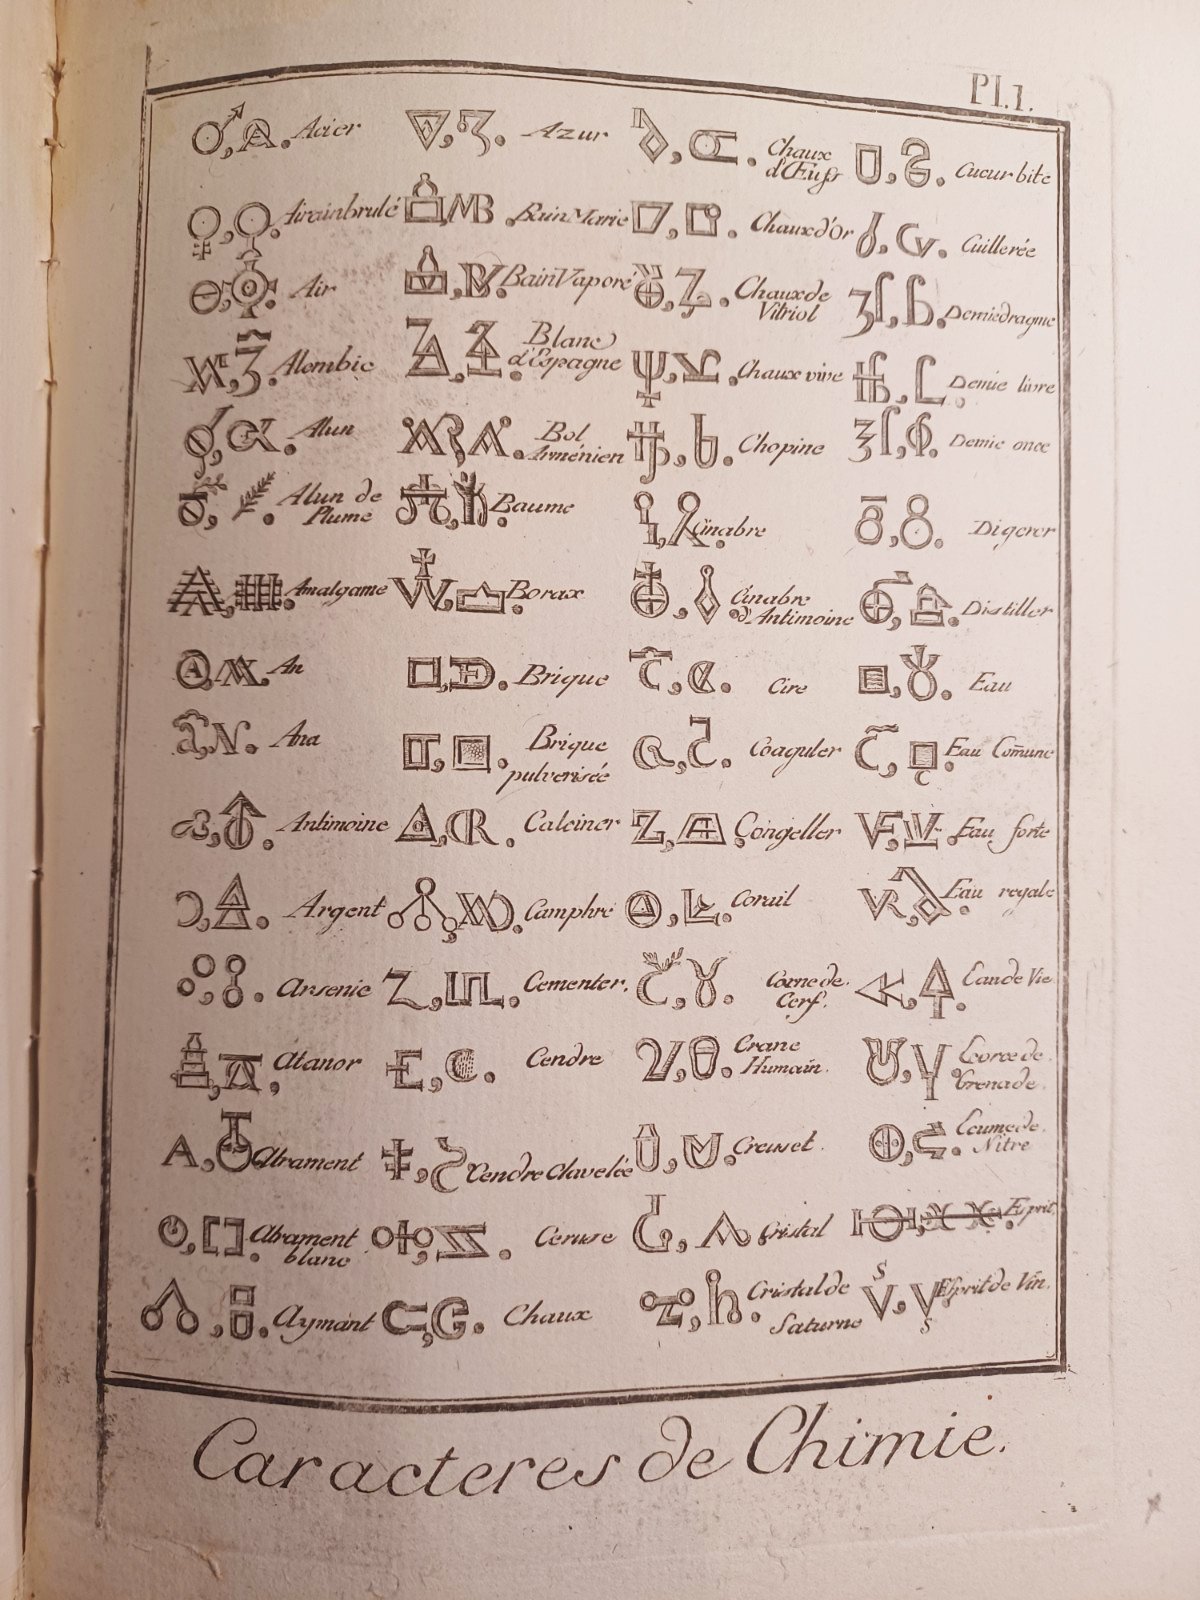 Pl.1.
Acier
Airain brulé
Air
Alembic
Alun
Alun de
Plume
Amalgame
An
Ana
Antimoine
Argent
Arsenic
Atanor
Atrament
Atrament
blanc
Aymant
Azur
Bain Marie
Bain Vapore
Blanc
d'Espagne
Bol
Arménien
Baume
Borax
Brique
Brique
pulverisée
Calciner
Camphre
Cementer.
Cendre
Cendre Clavelée
Ceruse
Chaux
Chaux
d'Œufs
Chaux d'Or
Chaux de
Vitriol
Chaux vive
Chopine
Cinabre
Cinabre
d'Antimoine
Cire
Coaguler
Congeller
Corail
Corne de.
Cerf.
Crane
Humain.
Creuset.
Cristal
Cristal de
Saturne
Cucurbite
Cuillerée
Demiedragme
Demie livre
Demie once
Digerer
Distiller
Eau
Eau Com̃une
Eau forte
Eau regale
Eau de Vie
Ecorce de.
Grenade.
Ecume de.
Nitre
Esprit.
Esprit de Vin.
Caracteres de Chimie.